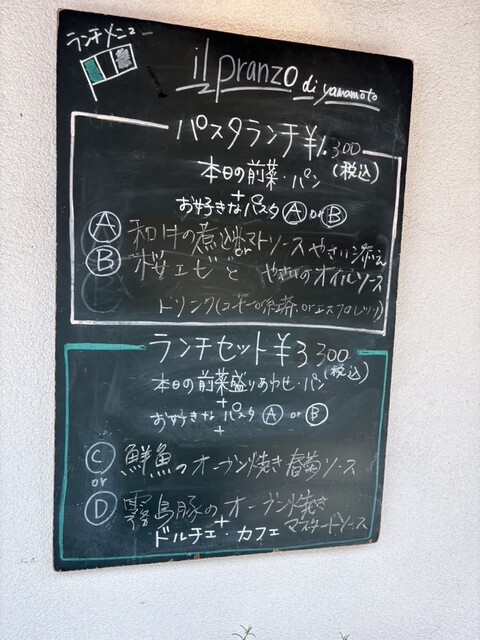 ランチメニュー
il pranzo
di yamamoto
パスタランチ ¥1,300
本日の前菜・パン (税込)
+
お好きなパスタ Ⓐ or Ⓑ
Ⓐ 和牛の煮込みトマトソース やさい添え
or
Ⓑ 桜エビと やさいのオイルソース
ドリンク(コーヒー or 紅茶 or エスプレッソ)
ランチセット ¥3300
(税込)
本日の前菜盛りあわせ・パン
+
お好きなパスタ Ⓐ or Ⓑ
+
Ⓒ 鮮魚のオーブン焼き 春菊ソース
or
Ⓓ 霧島豚のオーブン焼き
マスタードソース
+
ドルチェ・カフェ